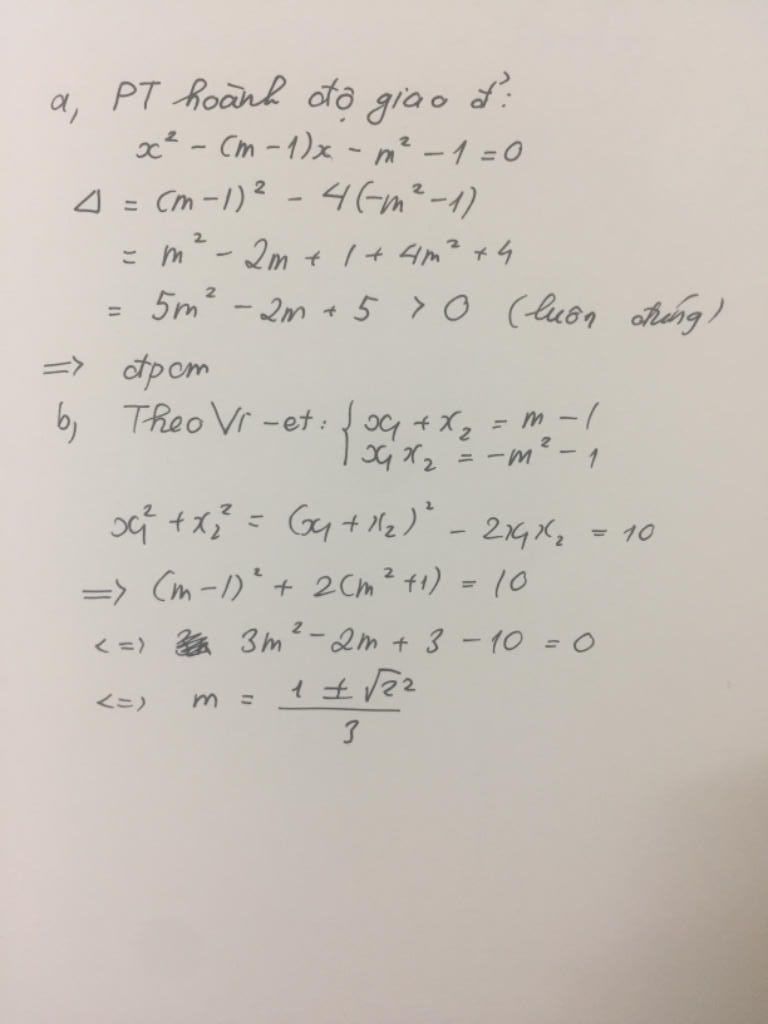 a, PT hoành độ giao đ²:
x² - (m-1)x - m² - 1 = 0
Δ = (m-1)² - 4(-m²-1)
= m² - 2m + 1 + 4m² + 4
= 5m² - 2m + 5 > 0 (luôn đúng)
=> đpcm
b, Theo Vi-et: { x₁ + x₂ = m - 1
x₁x₂ = -m² - 1
x₁² + x₂² = (x₁ + x₂)² - 2x₁x₂ = 10
=> (m-1)² + 2(m²+1) = 10
<=> 3m² - 2m + 3 - 10 = 0
<=> m = (1 ± √22)/3